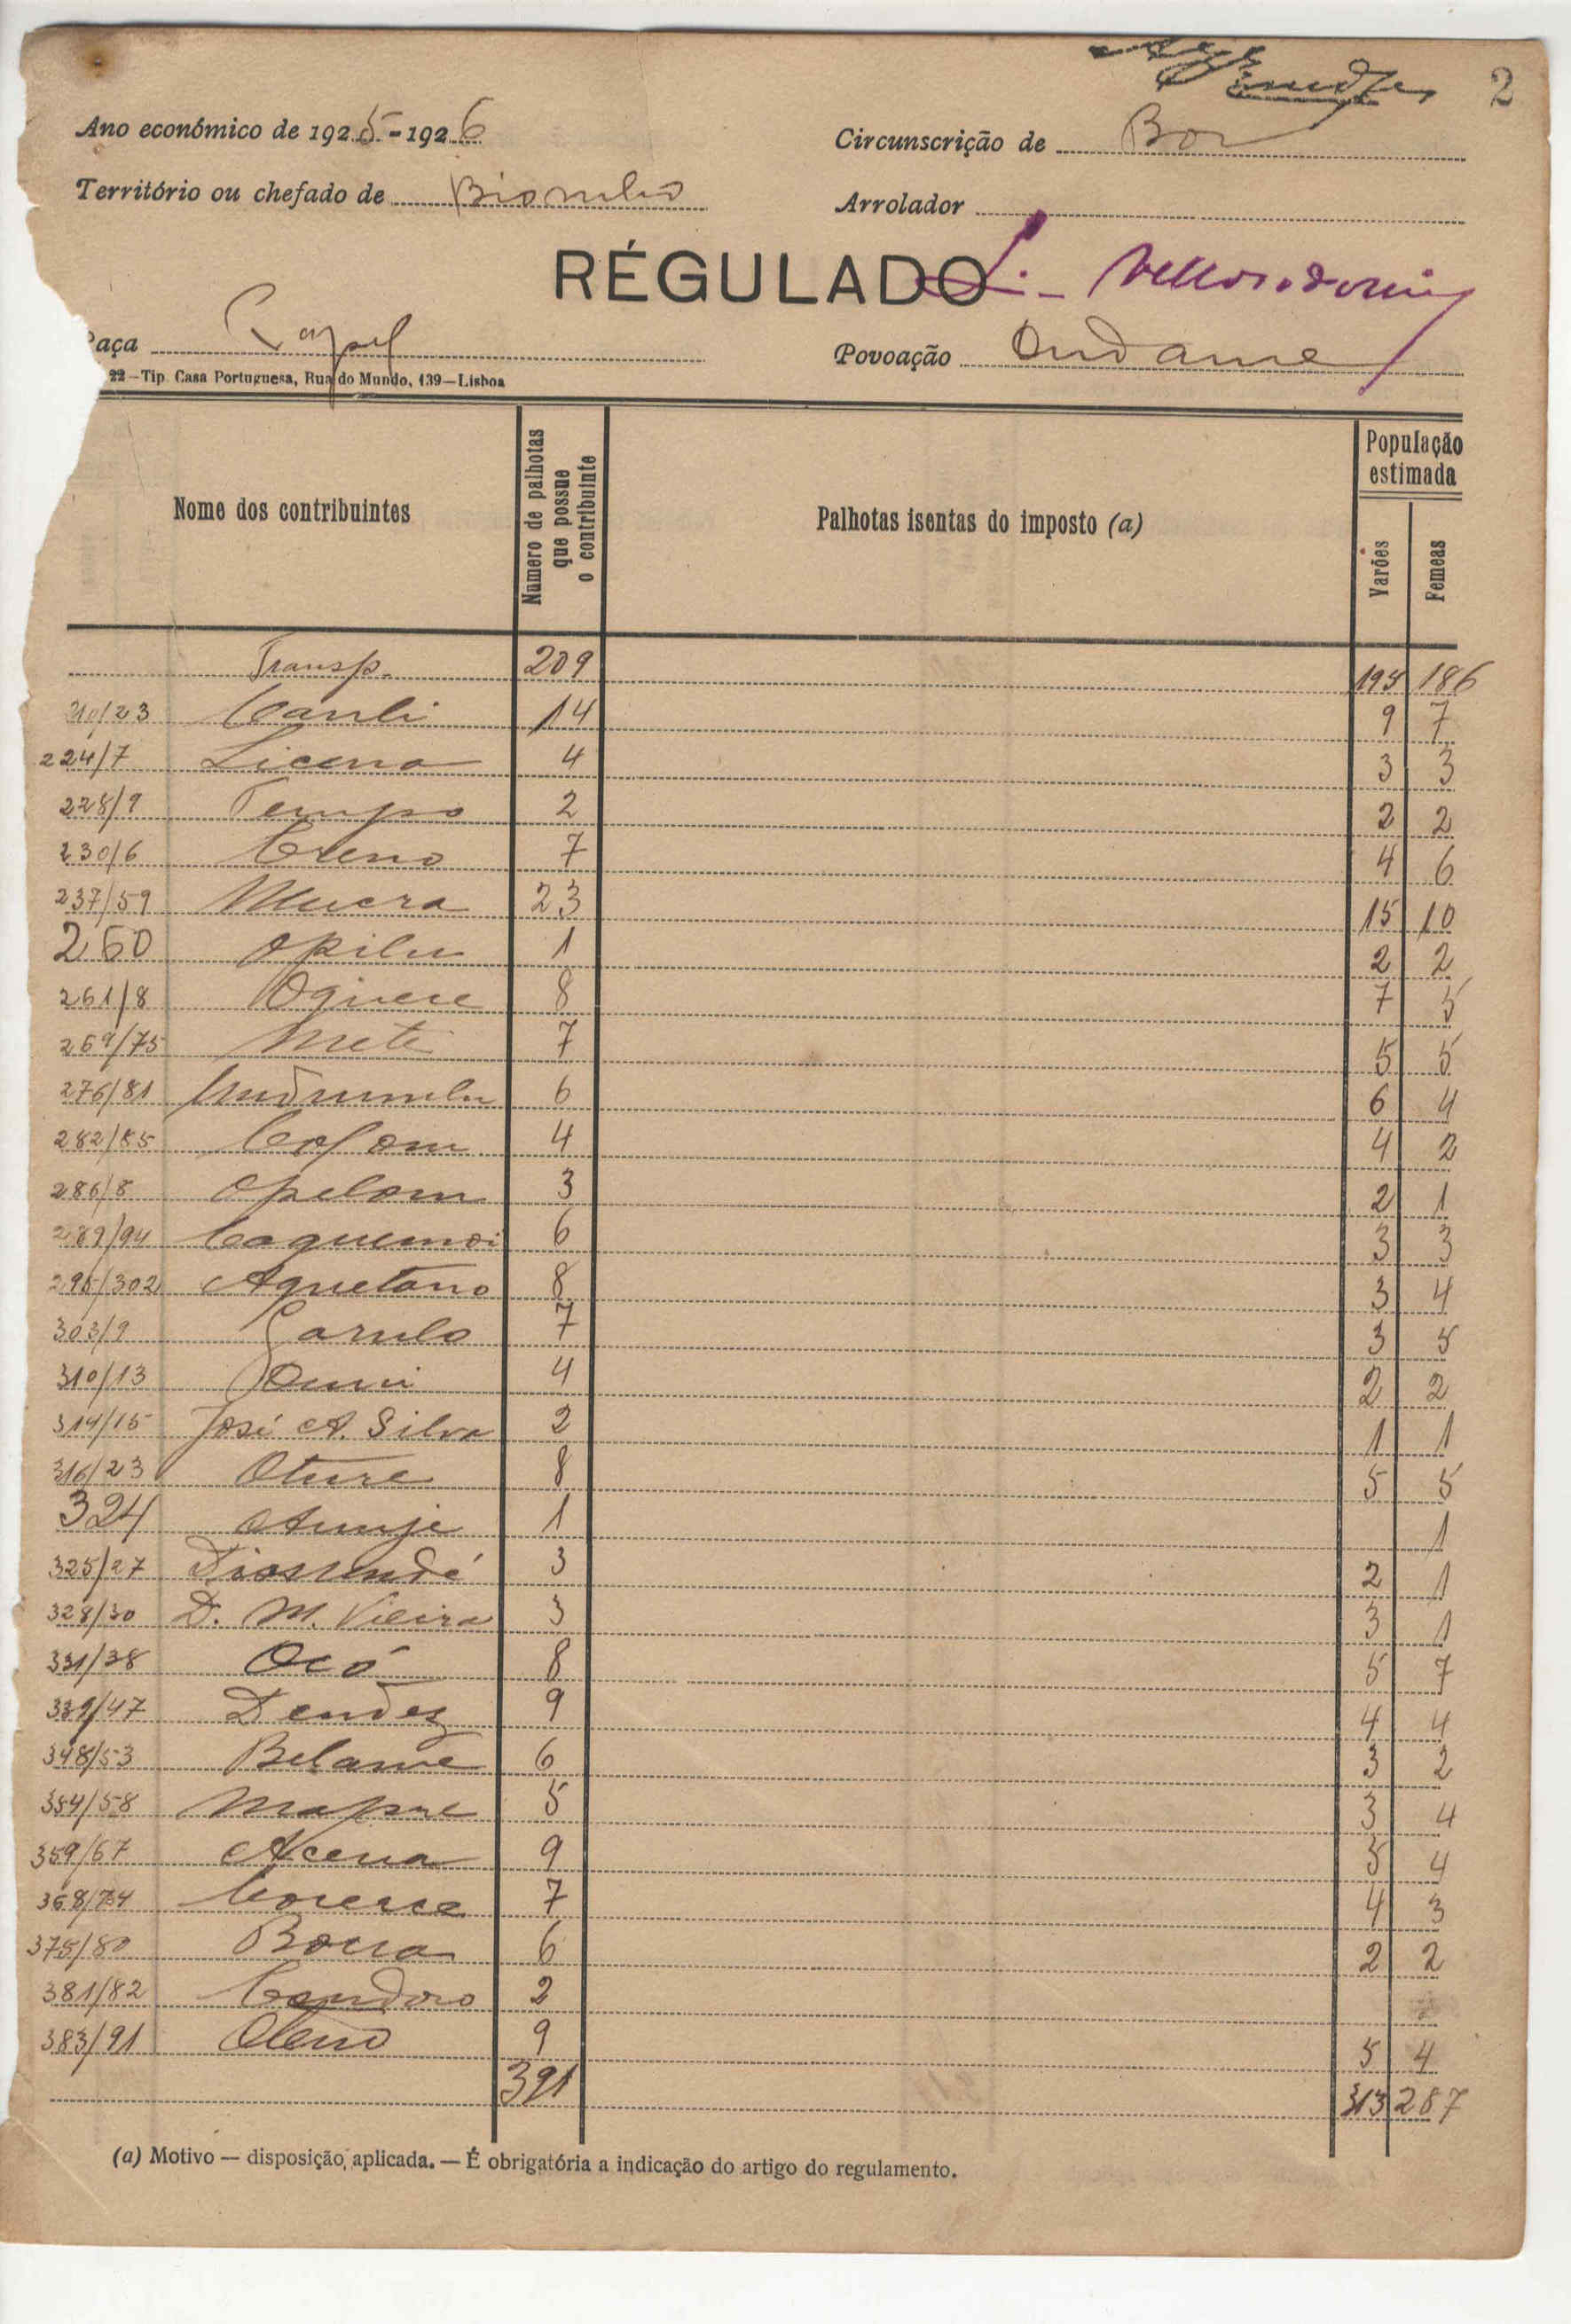 2
Ano económico de 1925-1926
Circunscrição de Bor
Território ou chefado de Biombo
Arrolador
RÉGULADO
aça Papel
Povoação Ondame
22—Tip. Casa Portuguesa, Rua do Mundo, 139—Lisboa
Nome dos contribuintes
Numero de palhotas que possue o contribuinte
Palhotas isentas do imposto (a)
População estimada
Varões
Femeas
Transp. 209 195 186
210/23 Canli 14 9 7
224/7 Licena 4 3 3
228/9 Tempo 2 2 2
230/6 Creno 7 4 6
237/59 Mucra 23 15 10
260 Opilu 1 2 2
261/8 8 7 5
269/75 Mete 7 5 5
276/81 6 6 4
282/85 4 4 2
286/8 Opelom 3 2 1
289/94 Caquemoi 6 3 3
295/302 Aquetano 8 3 4
303/9 7 3 5
310/13 4 2 2
314/15 José A. Silva 2 1 1
316/23 Oture 8 5 5
324 1 1
325/27 3 2 1
328/30 D. M. Vieira 3 3 1
331/38 Ocó 8 5 7
339/47 Dendez 9 4 4
348/53 Belame 6 3 2
354/58 5 3 4
359/67 9 5 4
368/74 7 4 3
375/80 6 2 2
381/82 2
383/91 Oleno 9 5 4
391 313 287
(a) Motivo — disposição aplicada. — É obrigatória a indicação do artigo do regulamento.